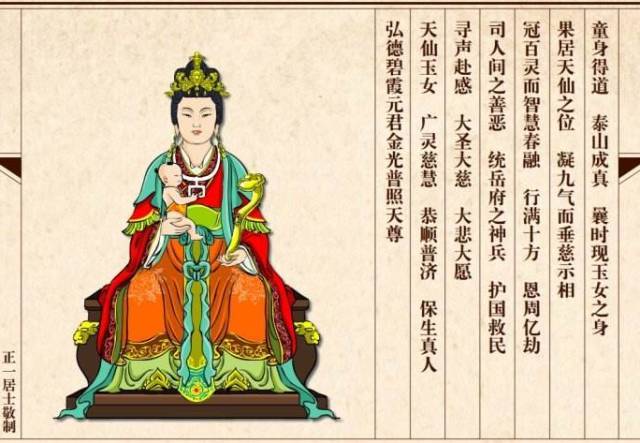 童身得道 泰山成真 曩时现玉女之身
果居天仙之位 凝九气而垂慈示相
冠百灵而智慧春融 行满十方 恩周亿劫
司人间之善恶 统岳府之神兵 护国救民
寻声赴感 大圣大慈 大悲大愿
天仙玉女 广灵慈慧 恭顺普济 保生真人
弘德碧霞元君金光普照天尊
正一居士敬制